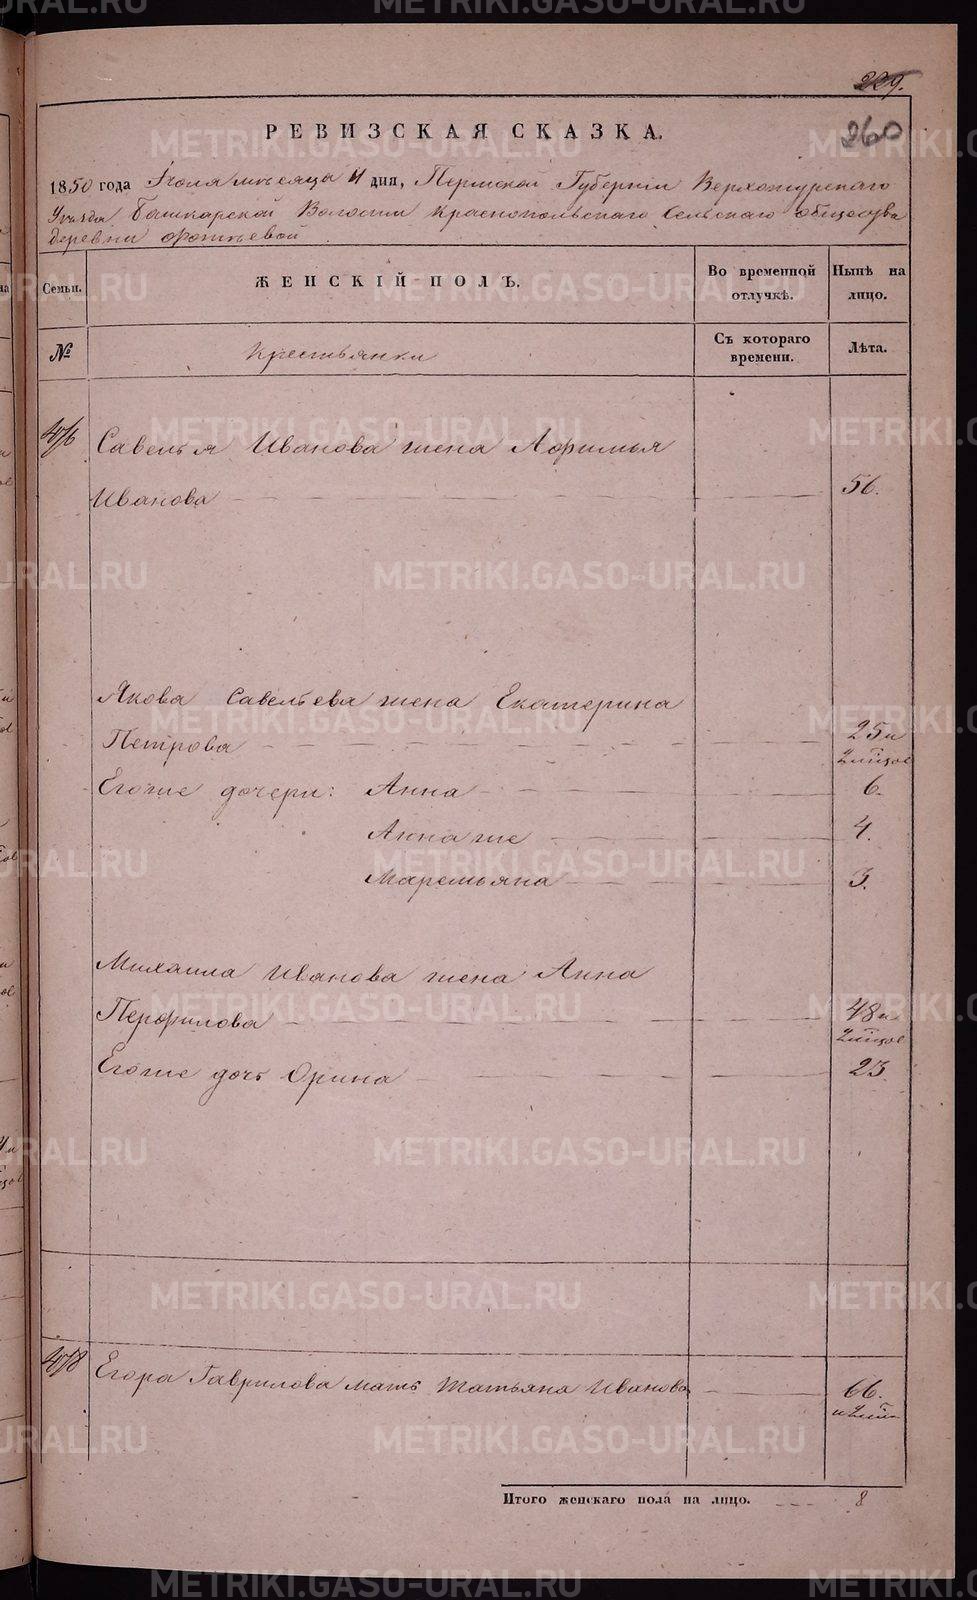 229.
РЕВИЗСКАЯ СКАЗКА.
260
1850 года Июля мѣсяца 4 дня, Пермской Губерніи Верхотурскаго
Уѣзда Башкарской Волости Краснопольскаго Сельскаго общества
деревни Фотѣевой
Семьи. ЖЕНСКІЙ ПОЛЪ. Во временной отлучкѣ. Нынѣ на лицо.
№ Крестьянки Съ котораго времени. Лѣта.
Савелья Иванова жена Афимья
Иванова 56.
Якова Савельева жена Екатерина
Петрова 25 и
Егоже дочери: Анна 6.
Анна же 4.
Маремьяна 3.
Михаила Иванова жена Анна
Перфилова 48 и
Егоже дочь Орина 23
Егора Гаврилова мать Татьяна Иванова 66.
Итого женскаго пола на лицо. 8
METRIKI.GASO-URAL.RU